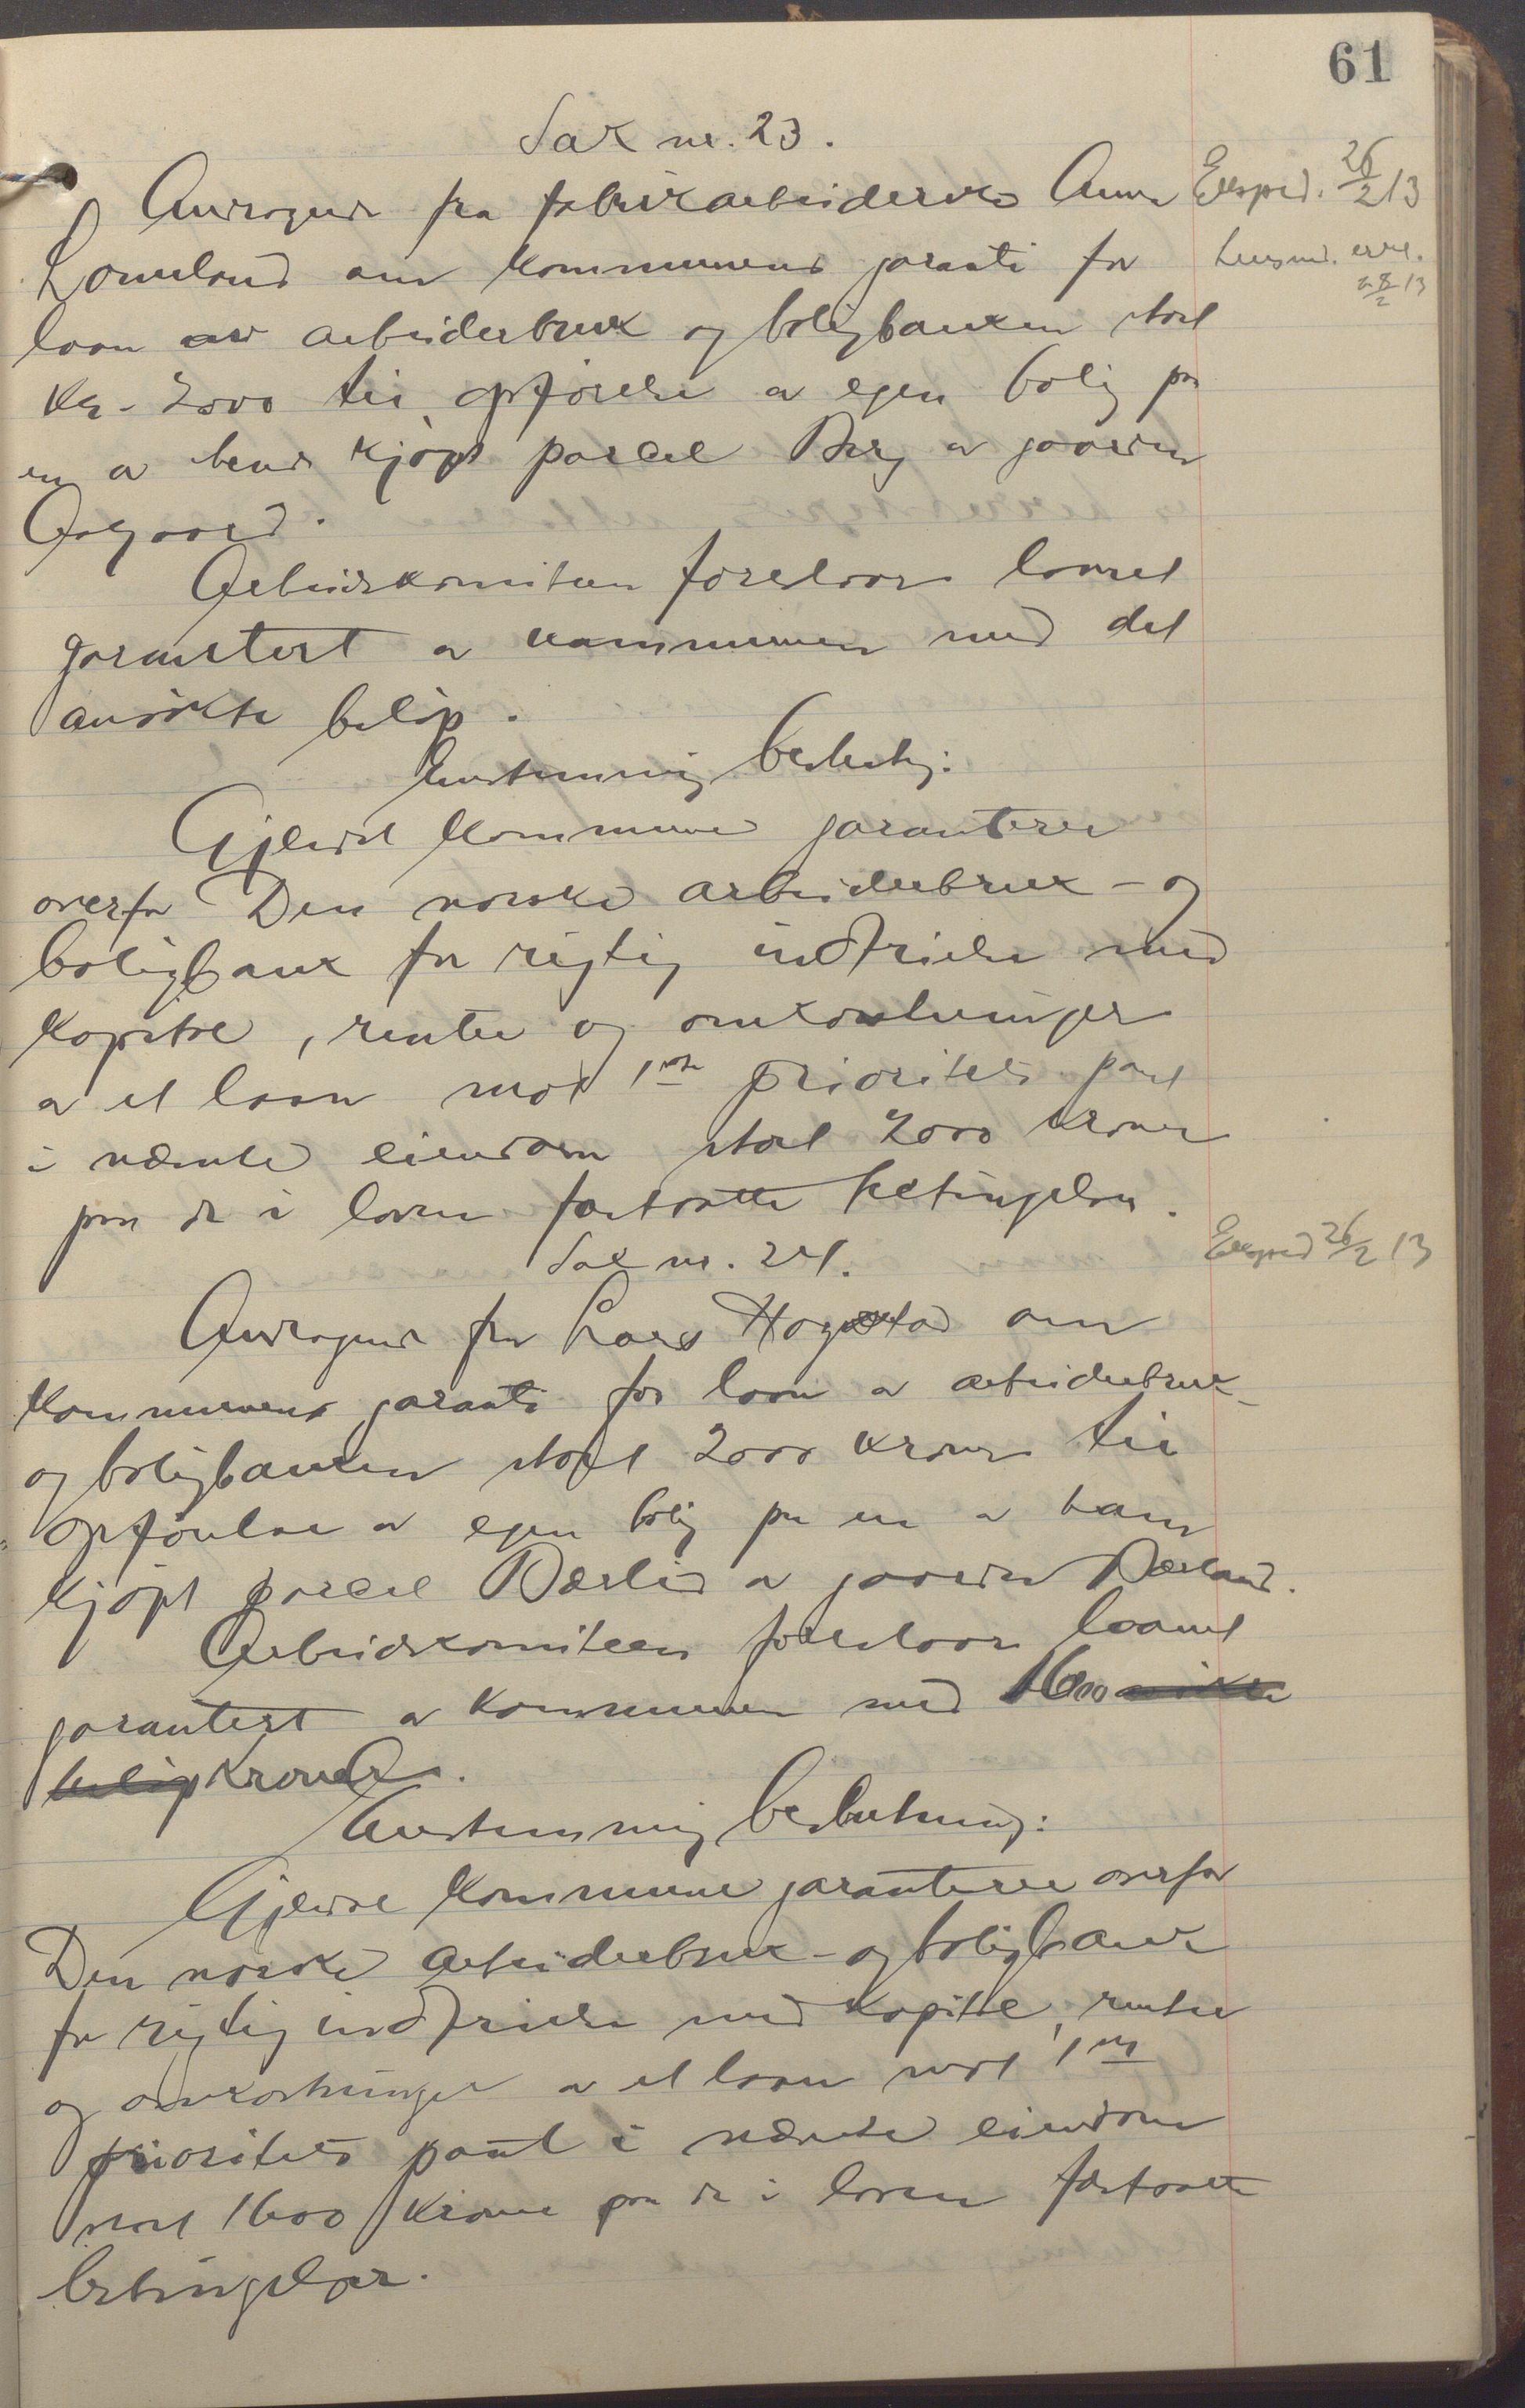 61
Sak nr. 23.
Andragende fra fabrikarbeiderske Anna
Eksped. 26/2 13
Lomeland om kommunens garanti for
28/2 13
laan av arbeiderbruk og boligbanken stort
kr. 2000 til opførelse av egen bolig paa
en av hende kjøpt parcel Berg av gaarden
Aalgaard.
Arbeidskomiteen foreslaar laanet
garantert av kommunen med det
ansøkte beløp.
Enstemmig beslutng:
Gjesdal kommune garanterer
overfor Den norske arbeiderbruk- og
boligbank for rigtig indfrielse med
kapital, renter og omkostninger
av et laan mot 1ste prioritets pant
i nævnte eiendom stort 2000 kroner
paa de i loven fastsatte betingelser.
Sak nr. 24.
Eksped 26/2 13
Andragende fra Lars Hogstad om
kommunens garanti for laan av arbeiderbruk-
og boligbanken stort 2000 kroner til
opførelse av egen bolig paa en av ham
kjøpt parcel Bærlid av gaarden Bærland.
Arbeidskomiteen foreslaar laanet
garantert av kommunen med 1600 ansøkte
beløp kroner.
Enstemmig beslutning:
Gjesdal kommune garanterer overfor
Den norske arbeiderbruk- og boligbank
for rigtig indfrielse med kapital, renter
og omkostninger av et laan mot 1ste
prioritets pant i nævnte eiendom
stort 1600 kroner paa de i loven fastsatte
betingelser.